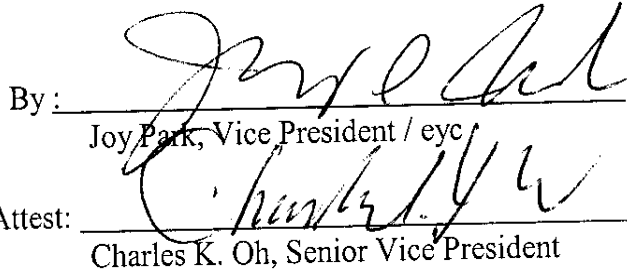 By :
Joy Park, Vice President / eyc
Attest:
Charles K. Oh, Senior Vice President